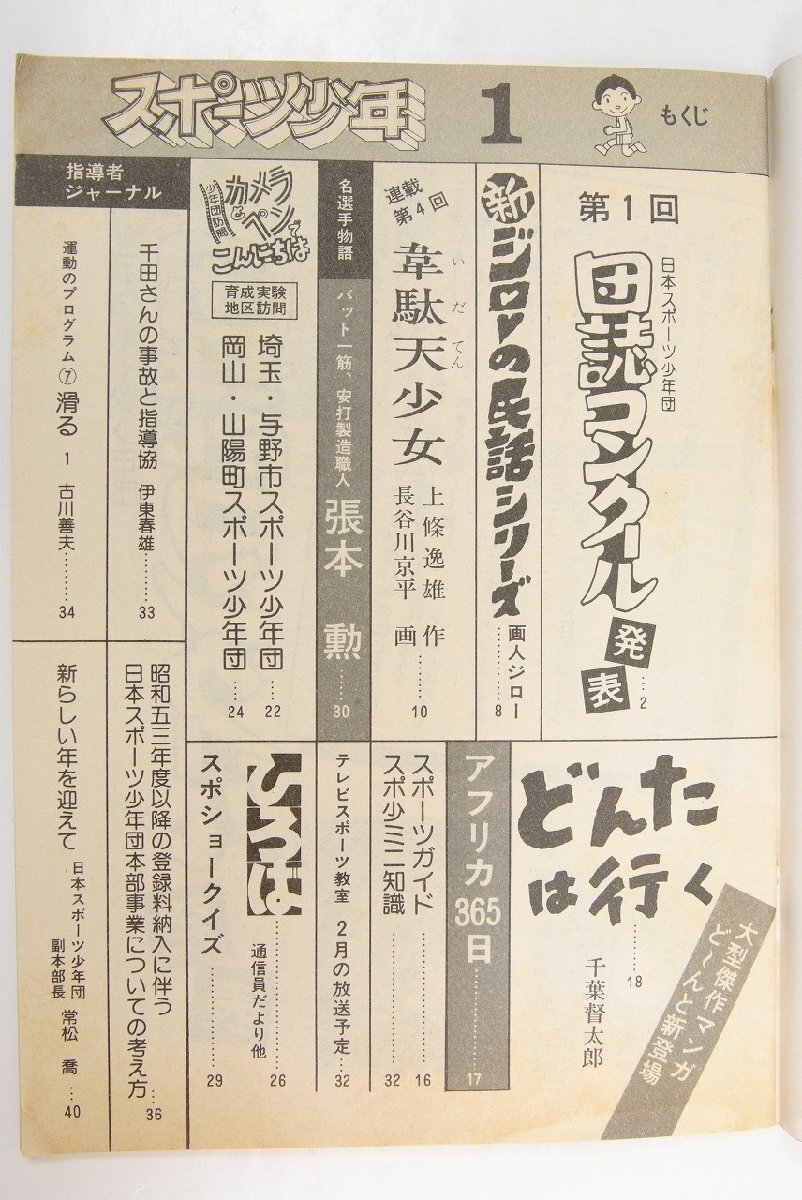 スポーツ少年
1
もくじ
第1回
日本スポーツ少年団
団誌コンクール
発表
…2
新ジローの民話シリーズ
画人ジロー
……8
連載
第4回
いだてん
韋駄天少女
上條逸雄 作
長谷川京平 画
………10
名選手物語
バット一筋、安打製造職人
張本 勲
……30
少年団訪問
カメラとペンで
こんにちは
育成実験
地区訪問
埼玉・与野市スポーツ少年団
…22
岡山・山陽町スポーツ少年団
…24
どんたは行く
………18
千葉督太郎
大型傑作マンガ
ど〜んと新登場
アフリカ365日
………17
スポーツガイド………16
スポ少ミニ知識………32
テレビスポーツ教室 2月の放送予定……32
ひろば
通信員だより他
………26
スポショークイズ………29
指導者
ジャーナル
千田さんの事故と指導協 伊東春雄………33
運動のプログラム⑦ 滑る 1 古川善夫………34
昭和五三年度以降の登録料納入に伴う
日本スポーツ少年団本部事業についての考え方…36
新らしい年を迎えて
日本スポーツ少年団
副本部長 常松 喬…40